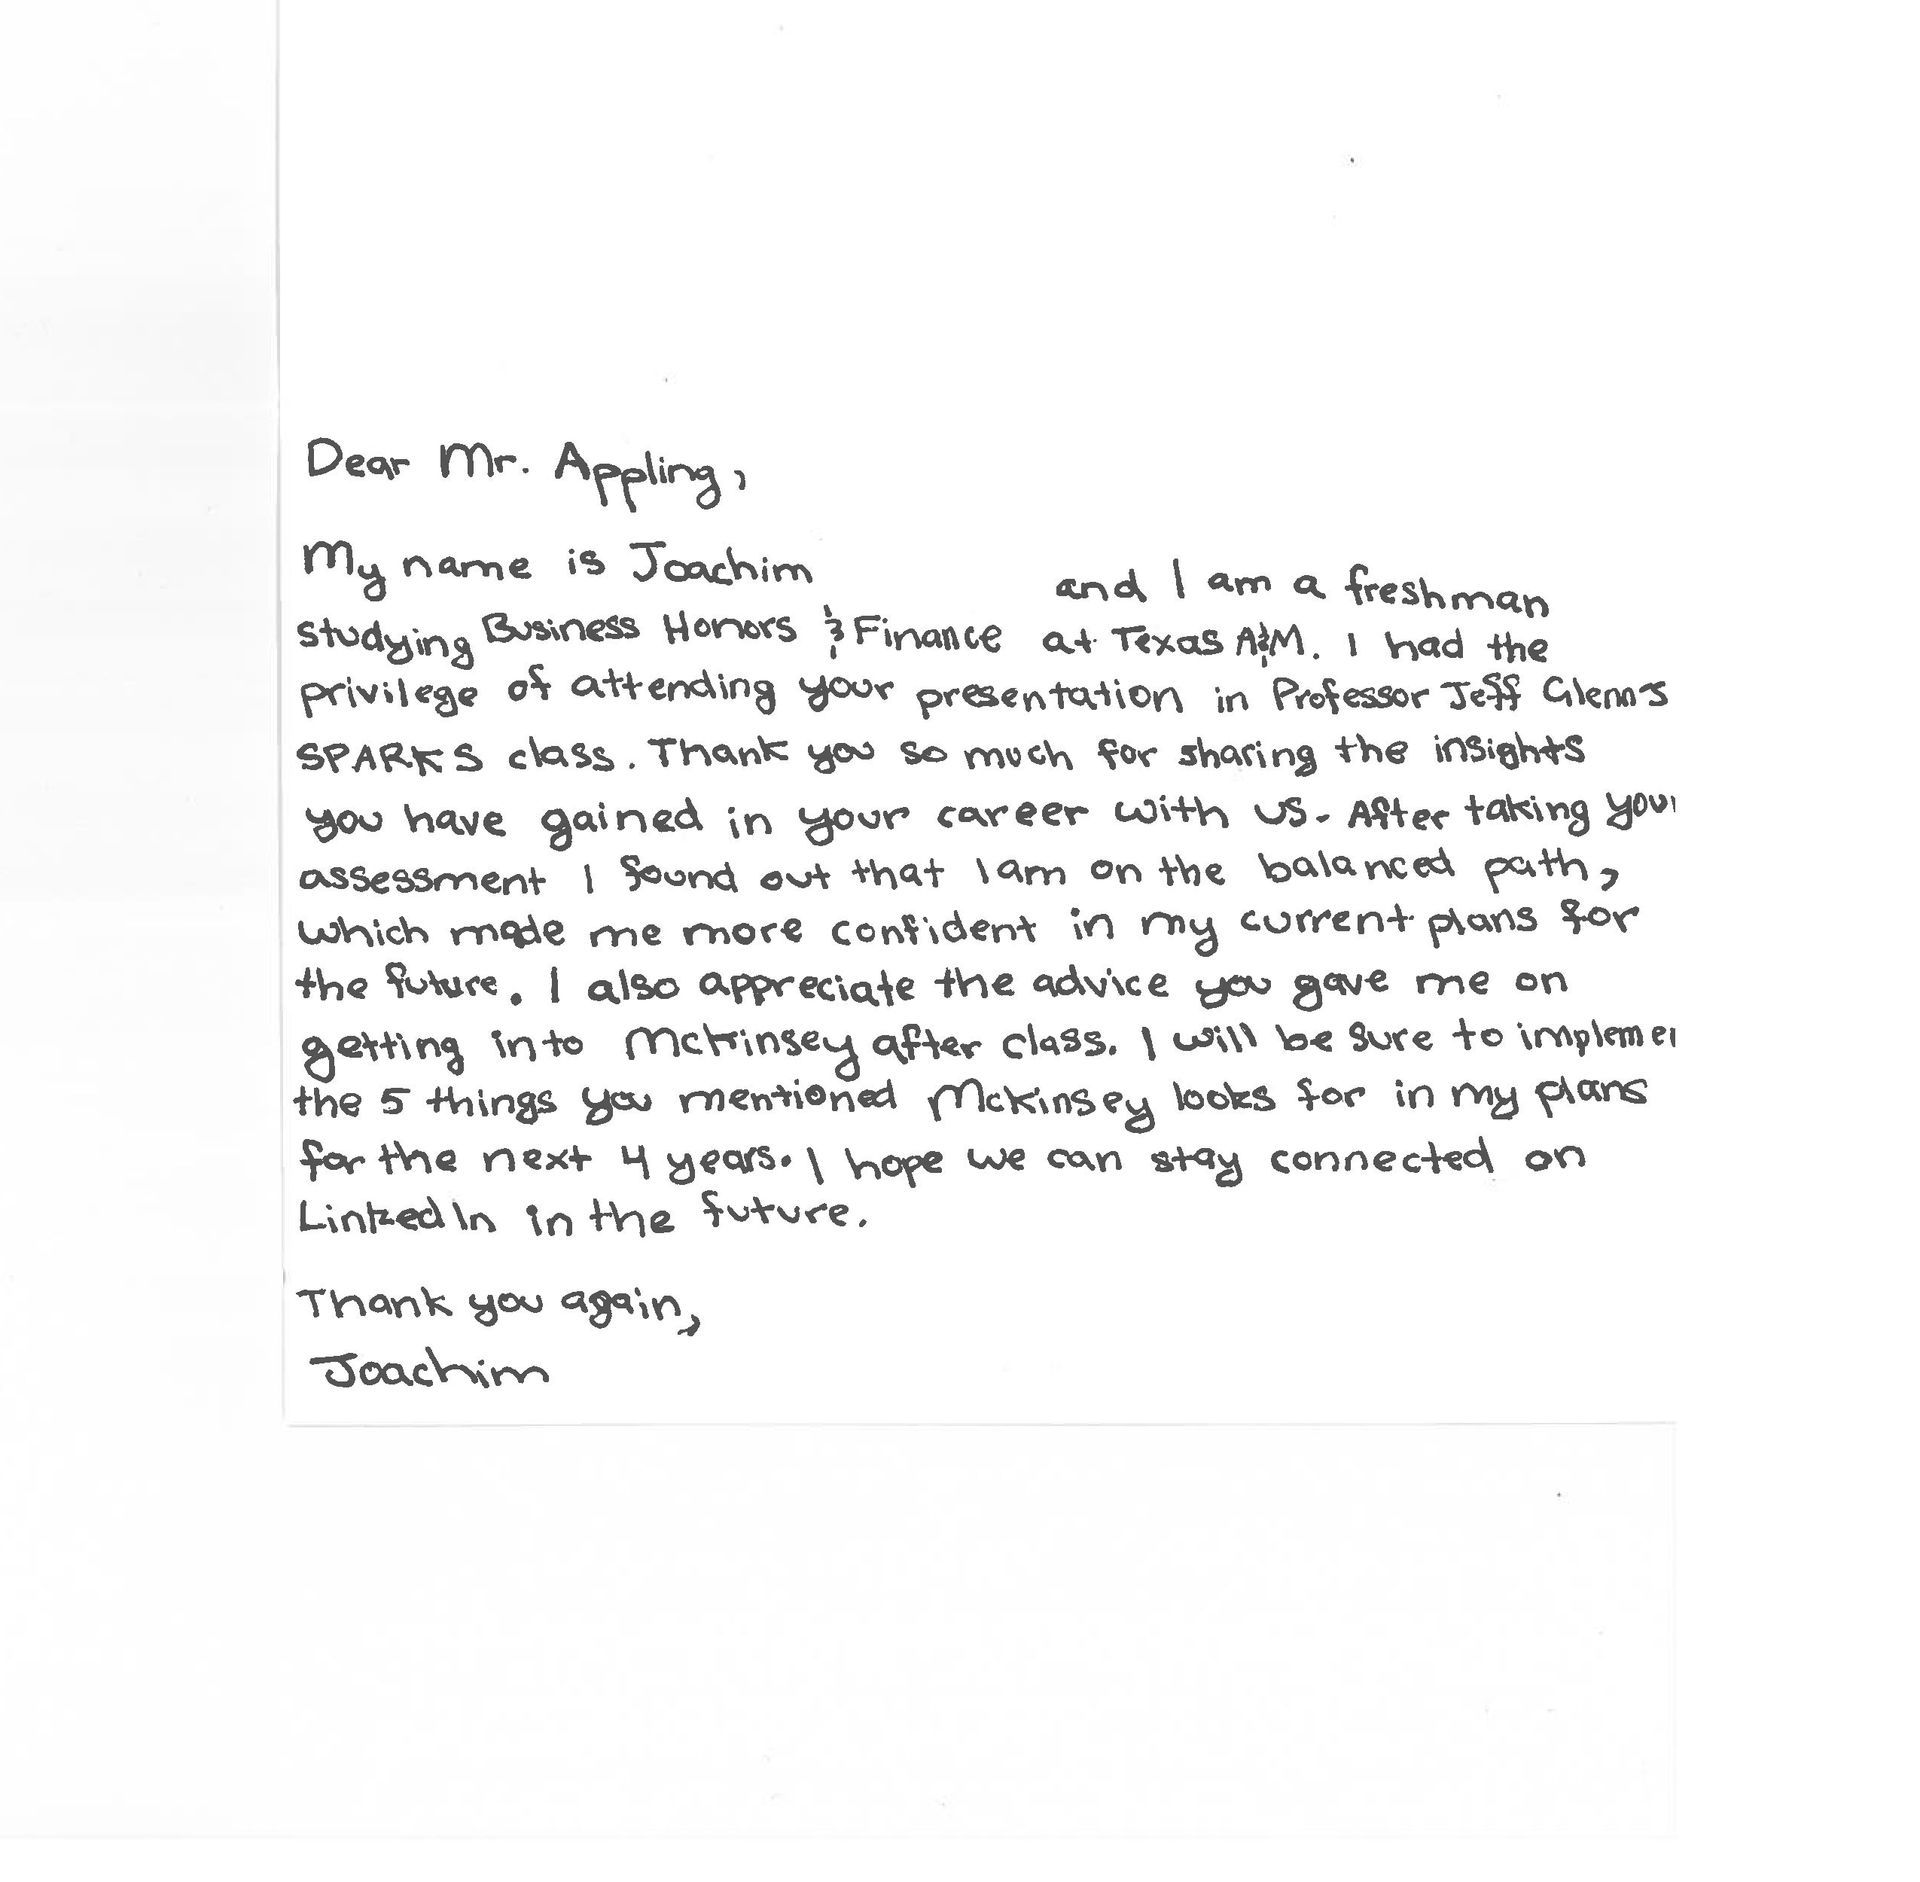 Dear Mr. Appling,
My name is Joachim and I am a freshman
studying Business Honors & Finance at Texas A&M. I had the
privilege of attending your presentation in Professor Jeff Glenn's
SPARKS class. Thank you so much for sharing the insights
you have gained in your career with us. After taking your
assessment I found out that I am on the balanced path,
which made me more confident in my current plans for
the future. I also appreciate the advice you gave me on
getting into McKinsey after class. I will be sure to implemen
the 5 things you mentioned McKinsey looks for in my plans
for the next 4 years. I hope we can stay connected on
LinkedIn in the future.
Thank you again,
Joachim